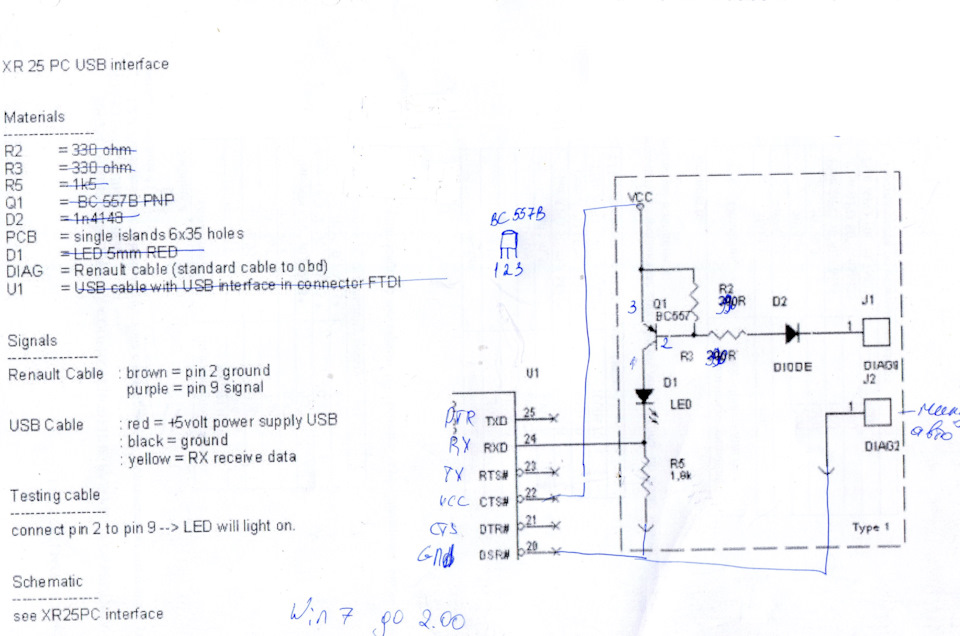 XR 25 PC USB interface
Materials
R2 = 330 ohm
R3 = 330 ohm
R5 = 1k5
Q1 = BC 557B PNP
D2 = 1n4148
PCB = single islands 6x35 holes
D1 = LED 5mm RED
DIAG = Renault cable (standard cable to obd)
U1 = USB cable with USB interface in connector FTDI
Signals
Renault Cable : brown = pin 2 ground
purple = pin 9 signal
USB Cable : red = +5volt power supply USB
: black = ground
: yellow = RX receive data
Testing cable
connect pin 2 to pin 9 --> LED will light on.
Schematic
see XR25PC interface
Win 7 до 2.00
BC 557B
1 2 3
VCC
3 Q1
BC557
2
1
R2
R3
D2
DIODE
J1
1
DIAG9
J2
1
DIAG2
D1
LED
R5
1,8k
Type 1
U1
DTR TXD 25
RX RXD 24
TX RTS# 23
VCC CTS# 22
CTS DTR# 21
GND DSR# 20
авто